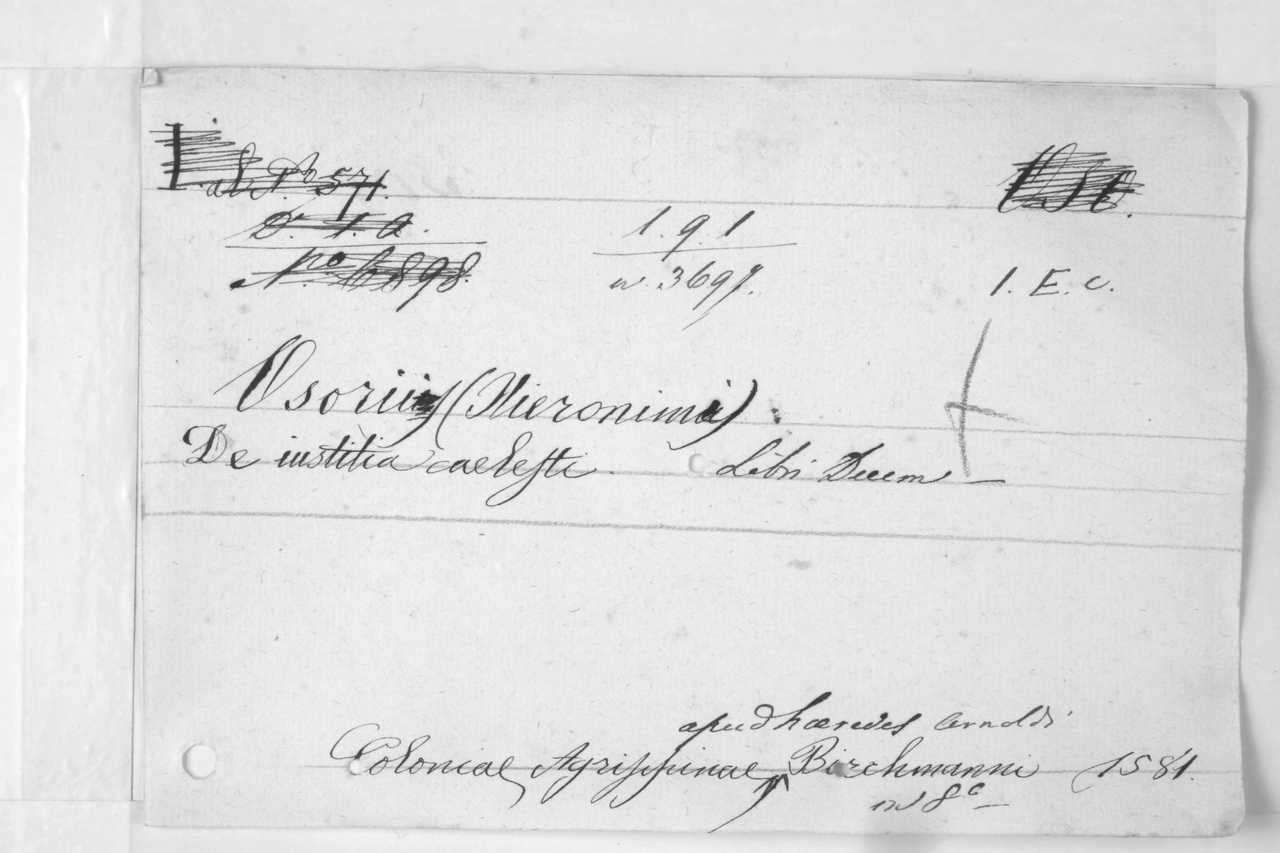 571.
D. 1. a.
No 6898.
1. 9. 1
n. 3697.
1. E. c.
Osorii (Hieronimi)
De iustitia caelesti. Libri Decem —
apud haeredes Arnoldi
Coloniae Agrippinae, Birckmanni 1581.
in 8º —